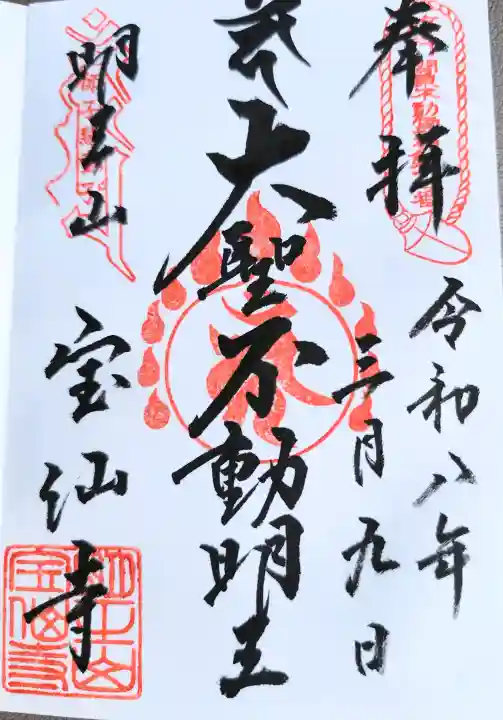 奉拝
令和八年
三月九日
大聖不動明王
明王山
宝仙寺